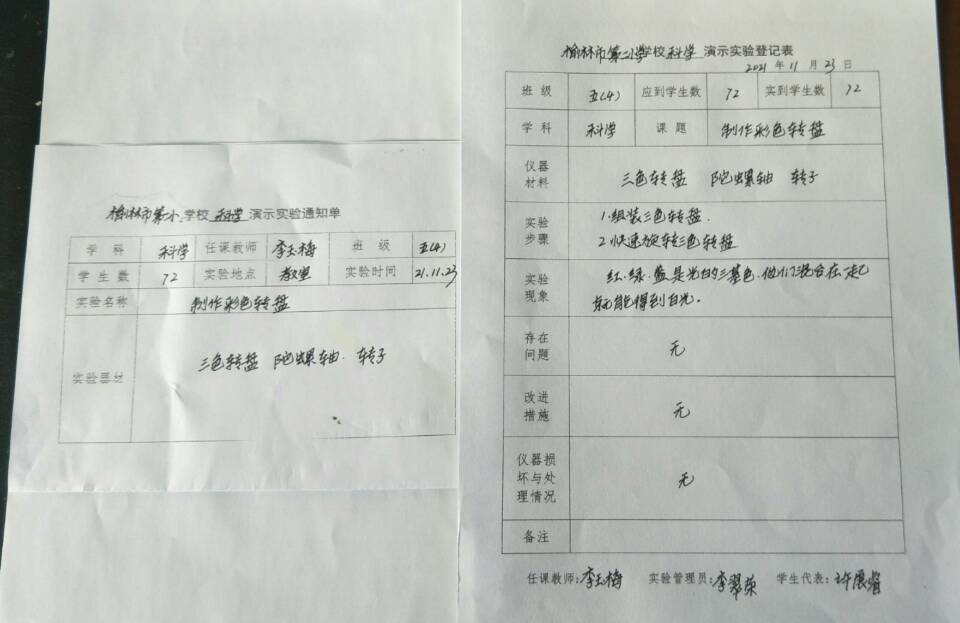 榆林市第二小学校 科学 演示实验通知单
学科 科学 任课教师 李玉梅 班级 五(4)
学生数 72 实验地点 教室 实验时间 21.11.23
实验名称 制作彩色转盘
实验器材 三色转盘 陀螺轴. 转子
榆林市第二小学校 科学 演示实验登记表
2021年11月23日
班级 五(4) 应到学生数 72 实到学生数 72
学科 科学 课题 制作彩色转盘
仪器材料 三色转盘 陀螺轴 转子
实验步骤 1.组装三色转盘.
2.快速旋转三色转盘
实验现象 红.绿.蓝是光的三基色.他们混合在一起
就能得到白光。
存在问题 无
改进措施 无
仪器损坏与处理情况 无
备注
任课教师:李玉梅 实验管理员:李翠荣 学生代表:许展睿